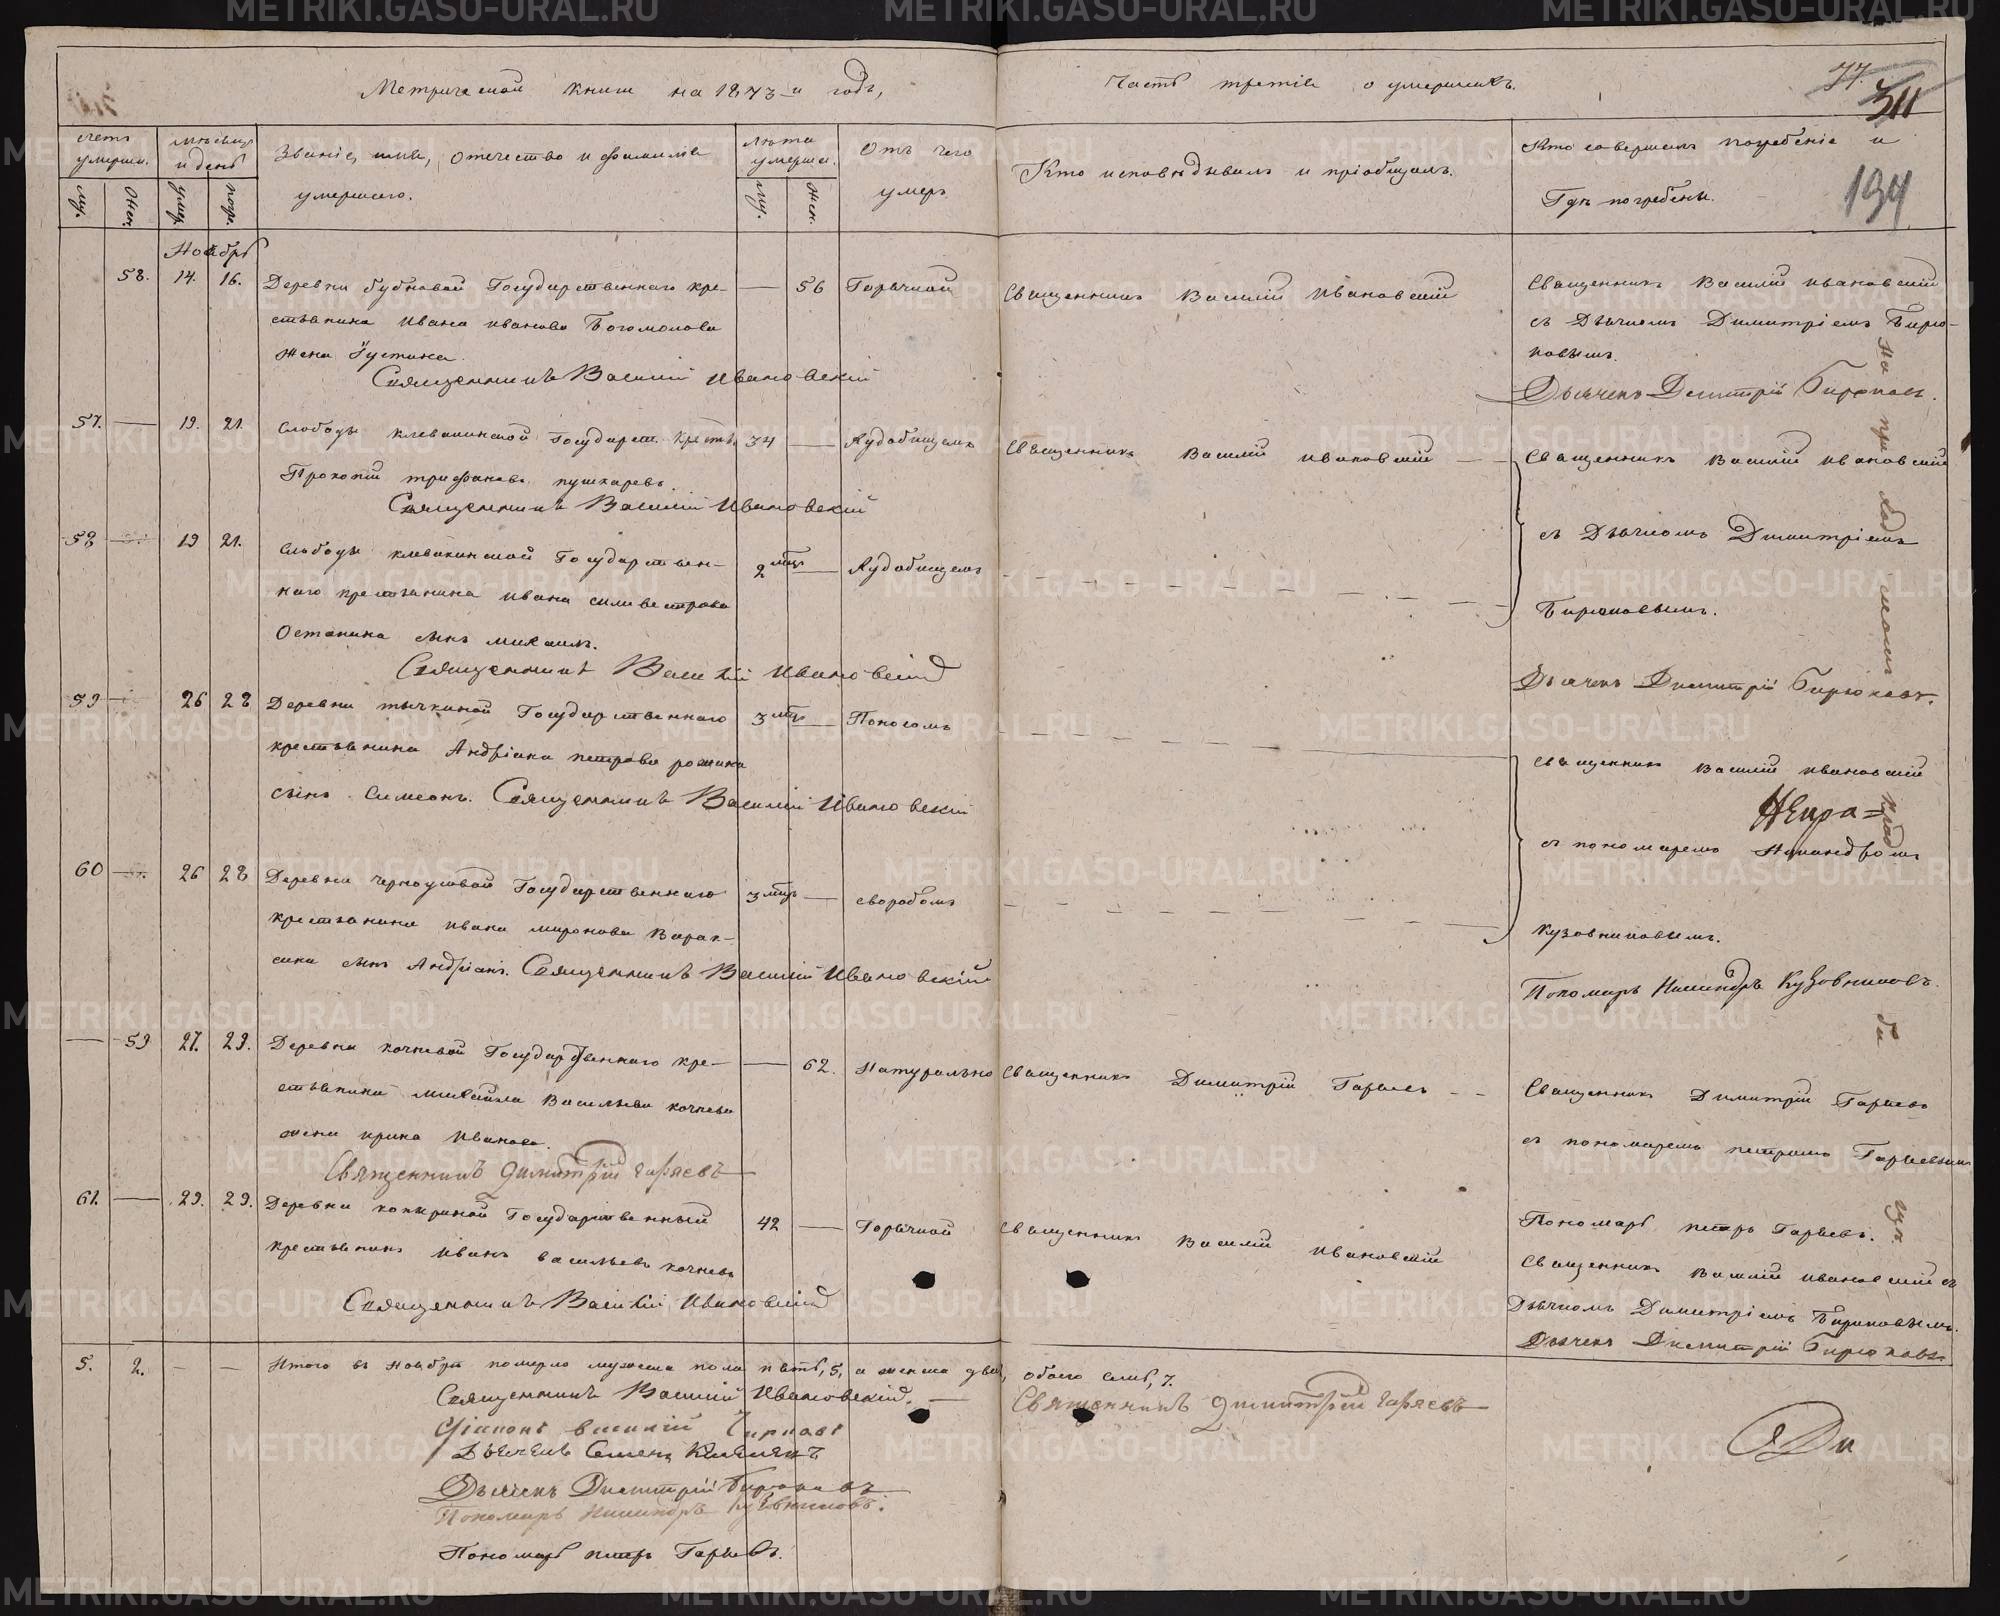 Метрической книги на 1873-й годъ,
Часть третія о умершихъ.
77.
311
194
счетъ умерши.
му.
жен.
мѣсяцъ и день
умер.
погре.
Званіе, имя, отечество и фамилія
умершаго.
лѣта умерша.
му.
жен.
Отъ чего
умеръ.
Кто исповѣдывалъ и пріобщалъ.
Кто совершалъ погребеніе и
Гдѣ погребены.
Ноябрь
58. 14. 16. Деревни бубновой Государственнаго кре-
стьянина Ивана Иванова Богомолова
жена Іустина.
— 56 Горячкой
Священникъ Василій Ивановскій
Священникъ Василій Ивановскій
съ Дьячкомъ Димитріемъ Бирю-
ковымъ.
Священникъ Василій Ивановскій
Дьячекъ Димитрій Бирюковъ.
57. — 19. 21. Слободы клевакинской Государст. крестьян.
Прокопій трифановъ пушкаревъ.
34 —
Священникъ Василій Ивановскій
Священникъ Василій Ивановскій
Священникъ Василій Ивановскій
съ Дьячкомъ Димитріемъ
Бирюковымъ.
58 19 21. Слободы клевакинской Государствен-
наго крестьянина Ивана силивестрова
Останина сынъ михаилъ.
2 мца —
Священникъ Василій Ивановскій
Дьячекъ Димитрій Бирюковъ.
59 — 26 28 Деревни тычкиной Государственнаго
крестьянина Андріана петрова рожина
сынъ Симеонъ. Священникъ Василій Ивановскій
3 мца — Поносомъ
Священникъ Василій Ивановскій
съ пономаремъ Никандромъ
Кузовниковымъ.
60 26 28 Деревни черноусовой Государственнаго
крестьянина ивана миронова Варак-
сина сынъ Андріанъ. Священникъ Василій Ивановскій
3 мца — сворабомъ
Пономарь Никандръ Кузовниковъ.
— 59 27. 29. Деревни кочневой Государственнаго кре-
стьянина михайла Васильева кочнева
жена ирина Иванова.
— 62. Натурально
Священникъ Димитрій Гаряевъ
Священникъ Димитрій Гаряевъ
съ пономаремъ петромъ Гаряевымъ
Священникъ Димитрій Гаряевъ
Пономарь петръ Гаряевъ.
61. — 29. 29. Деревни Государственный
крестьянинъ Иванъ васильевъ кочневъ
42 — Горячкой
Священникъ Василій Ивановскій
Священникъ Василій Ивановскій съ
Дьячкомъ Димитріемъ Бирюковымъ.
Священникъ Василій Ивановскій
Дьячекъ Димитрій Бирюковъ
5. 2. — — Итого въ Ноябрѣ померло мужеска пола пять, 5, а женска два, обоего семь, 7.
Священникъ Василій Ивановскій.
Священникъ Димитрій Гаряевъ
Діаконъ василій
Дьячекъ Семенъ
Дьячекъ Димитрій Бирюковъ
Пономарь Никандръ Кузовниковъ.
Пономарь петръ Гаряевъ.
METRIKI.GASO-URAL.RU